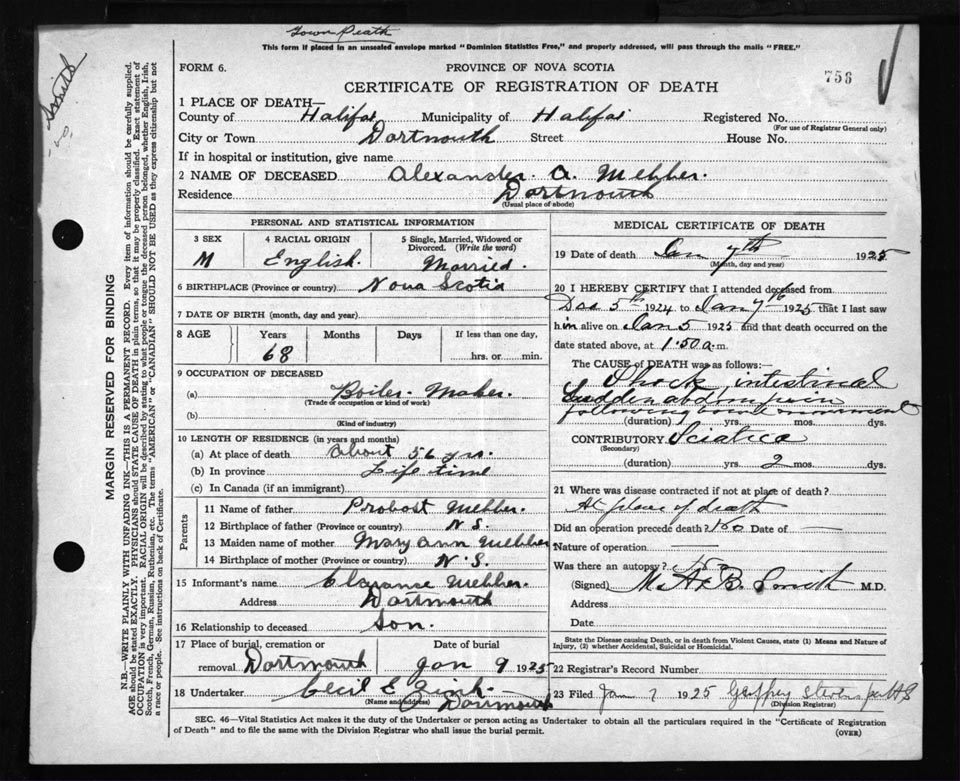 Town Death
This form if placed in an unsealed envelope marked "Dominion Statistics Free," and properly addressed, will pass through the mails "FREE."
FORM 6.
PROVINCE OF NOVA SCOTIA
756
CERTIFICATE OF REGISTRATION OF DEATH
1 PLACE OF DEATH—
County of Halifax Municipality of Halifax Registered No.
(For use of Registrar General only)
City or Town Dartmouth Street House No.
If in hospital or institution, give name
2 NAME OF DECEASED Alexander. A. Webber.
Residence Dartmouth
(Usual place of abode)
Smith
MARGIN RESERVED FOR BINDING
N.B.—WRITE PLAINLY WITH UNFADING INK—THIS IS A PERMANENT RECORD. Every item of information should be carefully supplied.
AGE should be stated EXACTLY. PHYSICIANS should STATE CAUSE OF DEATH in plain terms, so that it may be properly classified. Exact statement of
OCCUPATION is very important. RACIAL ORIGIN will be described by stating to what people or tongue the deceased person belonged, whether English, Irish,
Scotch, French, German, Russian, Ruthenian, etc. The terms "AMERICAN" or "CANADIAN" SHOULD NOT BE USED as they express citizenship but not
a race or people. See instructions on back of Certificate.
PERSONAL AND STATISTICAL INFORMATION
3 SEX
M
4 RACIAL ORIGIN
English.
5 Single, Married, Widowed or
Divorced. (Write the word)
Married.
6 BIRTHPLACE (Province or country) Nova Scotia
7 DATE OF BIRTH (month, day and year)
8 AGE Years Months Days If less than one day,
68 hrs. or min.
9 OCCUPATION OF DECEASED
(a) Boiler. Maker.
(Trade or occupation or kind of work)
(b)
(Kind of industry)
10 LENGTH OF RESIDENCE (in years and months)
(a) At place of death About 56 yrs.
(b) In province Life time
(c) In Canada (if an immigrant)
Parents
11 Name of father Probost Webber.
12 Birthplace of father (Province or country) N S.
13 Maiden name of mother Mary Ann Webber
14 Birthplace of mother (Province or country) N.S.
15 Informant's name Clarance Webber.
Address Dartmouth
16 Relationship to deceased Son.
17 Place of burial, cremation or Date of burial
removal Dartmouth Jan 9 1925
18 Undertaker Cecil E Zink
(Name and address) Dartmouth
MEDICAL CERTIFICATE OF DEATH
19 Date of death Jan 7th 1925
(Month, day and year)
20 I HEREBY CERTIFY that I attended deceased from
Dec 5th 1924 to Jan 7th 1925 that I last saw
him alive on Jan 5 1925 and that death occurred on the
date stated above, at 1.50 a.m.
The CAUSE OF DEATH was as follows:
Shock, intestinal
Sudden abdom pain
following
(duration) yrs. mos. dys.
CONTRIBUTORY Sciatica
(Secondary)
(duration) yrs. 2 mos. dys.
21 Where was disease contracted if not at place of death?
At place of death
Did an operation precede death? No Date of —
Nature of operation —
Was there an autopsy? No
(Signed) B. Smith M.D.
Address
Date
State the Disease causing Death, or in death from Violent Causes, state (1) Means and Nature of
Injury, (2) whether Accidental, Suicidal or Homicidal.
22 Registrar's Record Number
23 Filed Jan 7 1925 Geoffrey Stevens per HS
(Division Registrar)
SEC. 46—Vital Statistics Act makes it the duty of the Undertaker or person acting as Undertaker to obtain all the particulars required in the "Certificate of Registration
of Death" and to file the same with the Division Registrar who shall issue the burial permit.
(OVER)